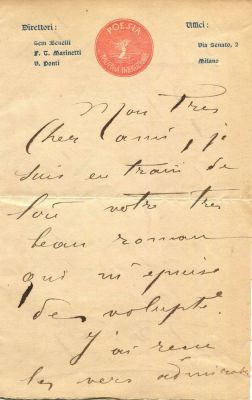 Direttori:
Sem Benelli
F. T. Marinetti
V. Ponti
POESIA
RASSEGNA INTERNAZIONALE
Uffici:
Via Senato, 2
Milano
Mon tres
Cher ami, je
suis en train de
votre tres
beau roman
qui m'epuise
de volupté.
J'ai reçu
les vers